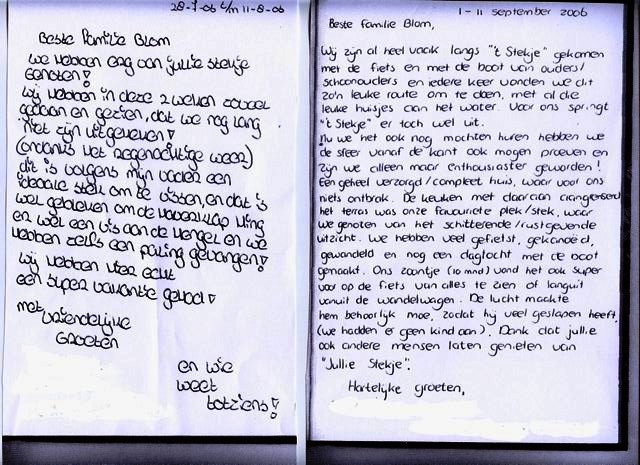 28-7-06 t/m 11-8-06
Beste Familie Blom
we hebben erg van jullie stekje
genoten!
Wij hebben in deze 2 weken zoveel
gedaan en gezien, dat we nog lang
niet zijn uitgekeken!
(ondanks het regenachtige weer)
dit is volgens mijn vader een
ideale stek om te vissen, en dat is
wel gebleven om de haverklap hing
er wel een vis aan de hengel en we
hebben zelfs een paling gevangen!
wij hebben hier echt
een super vakantie gehad!
met
vriendelijke
Groeten
en wie
weet
totziens!
1 - 11 september 2006
Beste familie Blom,
Wij zijn al heel vaak langs "'t Stekje" gekomen
met de fiets en met de boot van ouders/
schoonouders en iedere keer vonden we dit
zo'n leuke route om te doen, met al die
leuke huisjes aan het water. Voor ons springt
"'t Stekje" er toch wel uit.
Nu we het ook nog mochten huren hebben we
de sfeer vanaf de kant ook mogen proeven en
zijn we alleen maar enthousiaster geworden!
Een geheel verzorgd/compleet huis, waar voor ons
niets ontbrak. De keuken met daaraan aangrenzend
het terras was onze favouriete plek/stek, waar
we genoten van het schitterende/rustgevende
uitzicht. We hebben veel gefietst, gekanoëd,
gewandeld en nog een dagtocht met de boot
gemaakt. Ons zoontje (10 mnd) vond het ook super
voor op de fiets van alles te zien of languit
vanuit de wandelwagen. De lucht maakte
hem behoorlijk moe, zodat hij veel geslapen heeft.
(we hadden er geen kind aan). Dank dat jullie
ook andere mensen laten genieten van
"Jullie Stekje".
Hartelijke groeten,